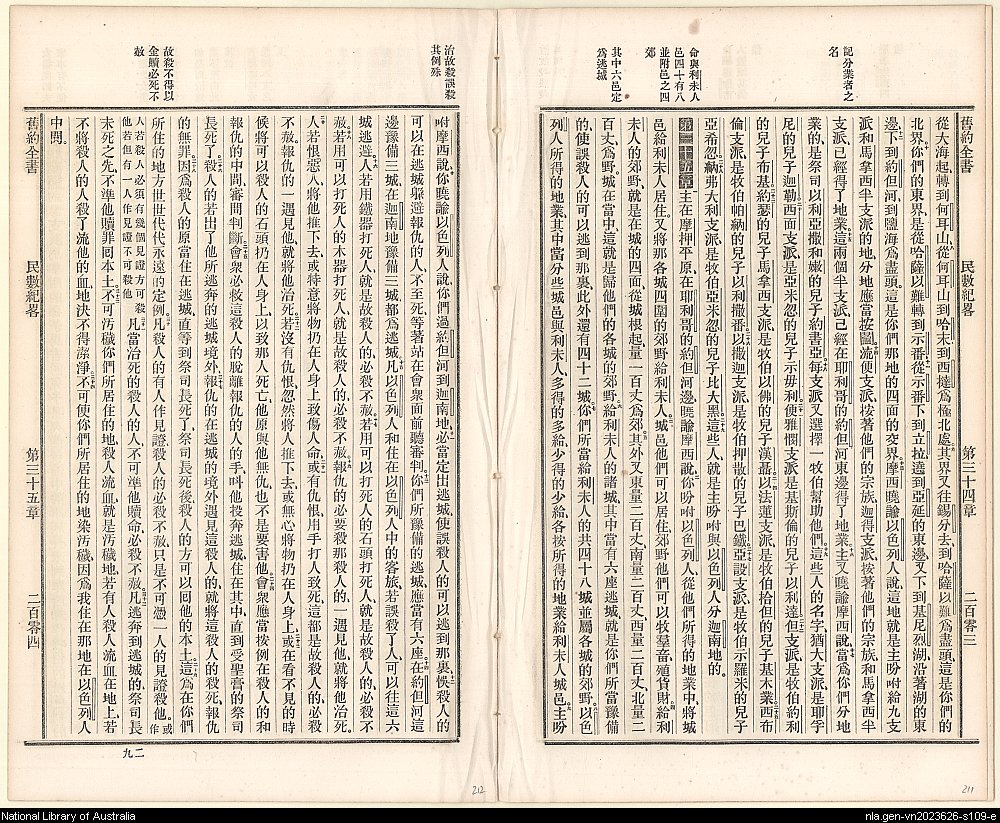 記分業者之
名
命與利未人
邑四十有八
並附邑之四
郊
其中六邑定
爲逃城
舊約全書
民數紀畧
第三十四章
二百零三
從大海起轉到何耳山從何耳山到哈末到西撻爲極北處其界又往錫分去到哈薩以難爲盡頭這是你們的
北界你們的東界是從哈薩以難轉到示番從示番下到立拉達到亞延的東邊又下到基尼烈湖沿著湖的東
邊下到約但河到鹽海爲盡頭這是你們那地的四面的交界摩西曉諭以色列人說這地就是主吩咐給九支
派和馬拿西半支派的地分地應當按鬮流便支派按著他們的宗族迦得支派按著他們的宗族和馬拿西半
支派已經得了地業這兩個半支派已經在耶利哥的約但河東邊得了地業主又曉諭摩西說當爲你們分地
業的是祭司以利亞撒和嫩的兒子約書亞每支派又選擇一牧伯幫助他們這些人的名字猶大支派是耶孚
尼的兒子迦勒西面支派是亞米忽的兒子示毋利便雅憫支派是基斯倫的兒子以利達但支派是牧伯約利
的兒子布基約瑟的兒子馬拿西支派是牧伯以佛的兒子漢聶以法蓮支派是牧伯拾但的兒子基木業西布
倫支派是牧伯帕納的兒子以利撒番以撒迦支派是牧伯押散的兒子巴鐵亞設支派是牧伯示羅米的兒子
亞希忽納弗大利支派是牧伯亞米忽的兒子比大黑這些人就是主吩咐與以色列人分迦南地的
第三十五章主在摩押平原在耶利哥的約但河邊曉諭摩西說你吩咐以色列人從他們所得的地業中將城
邑給利未人居住又將那各城四圍的郊野給利未人城邑他們可以居住郊野他們可以牧羣畜殖貨財給利
未人的郊野就是在城的四面從城根起量一百丈爲郊其外又東量二百丈南量二百丈西量二百丈北量二
百丈爲野城在當中這就是歸他們的各城的郊野給利未人的諸城其中當有六座逃城就是你們所當豫備
的使誤殺人的可以逃到那裏此外還有四十二城你們所當給利未人的共四十八城並屬各城的郊野以色
列人所得的地業其中當分些城邑與利未人多得的多給少得的少給各按所得的地業給利未人城邑主吩
治故殺誤殺
其例殊
故殺不得以
金贖必死不
赦
咐摩西說你曉諭以色列人說你們過約但河到迦南地必當定出逃城使誤殺人的可以逃到那裏悞殺人的
可以在逃城躲避報仇的人不至死等著站在會衆面前聽審判你們所豫備的逃城應當有六座在約但河這
邊豫備三城在迦南地豫備三城都爲逃城凡以色列人和住在以色列人中的客旅若誤殺了人可以往這六
城逃避人若用鐵器打死人就是故殺人的必殺不赦若用可以打死人的石頭打死人就是故殺人的必殺不
赦若用可以打死人的木器打死人就是故殺人的必殺不赦報仇的必要殺那殺人的一遇見他就將他治死
人若恨惡人將他推下去或特意將物扔在人身上致傷人命或有仇恨用手打人致死這都是故殺人的必殺
不赦報仇的一遇見他就將他治死若沒有仇恨忽然將人推下去或無心將物扔在人身上或在看不見的時
候將可以殺人的石頭扔在人身上以致那人死亡他原與他無仇也不是要害他會衆應當按例在殺人的和
報仇的中間審問判斷會衆必救這殺人的脫離報仇的人的手叫他投奔逃城住在其中直到受聖膏的祭司
長死了殺人的若出了他所逃奔的逃城境外報仇的在逃城的境外遇見這殺人的就將這殺人的殺死報仇
的無罪因爲殺人的原當住在逃城直等到祭司長死了祭司長死後殺人的方可以回他的本土這爲在你們
所住的地方世世代代永遠的定例凡殺人的有人作見證殺人的必殺不赦只是不可憑一人的見證殺他或作
人若殺人必須有幾個見證方可殺他若但有一人作見證不可殺他凡當治死的殺人的人不可準他贖命必殺不赦凡逃奔到逃城的祭司長
未死之先不準他贖罪囘本土不可汚穢你們所居住的地殺人流血就是汚穢地若有人殺人流血在地上若
不將殺人的人殺了流他的血地決不得潔淨不可使你們所居住的地染汚穢因爲我住在那地在以色列人
中間
舊約全書
民數紀畧
第三十五章
二百零四
九二
212
211
National Library of Australia
nla.gen-vn2023626-s109-e